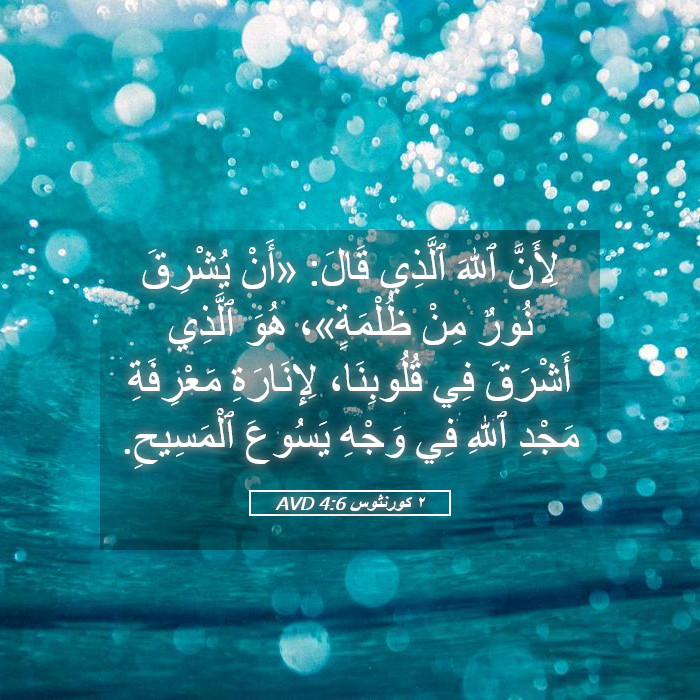 لِأَنَّ ٱللهَ ٱلَّذِي قَالَ: «أَنْ يُشْرِقَ
نُورٌ مِنْ ظُلْمَةٍ»، هُوَ ٱلَّذِي
أَشْرَقَ فِي قُلُوبِنَا، لِإِنَارَةِ مَعْرِفَةِ
مَجْدِ ٱللهِ فِي وَجْهِ يَسُوعَ ٱلْمَسِيحِ.
٢ كورنثوس 4:6 AVD